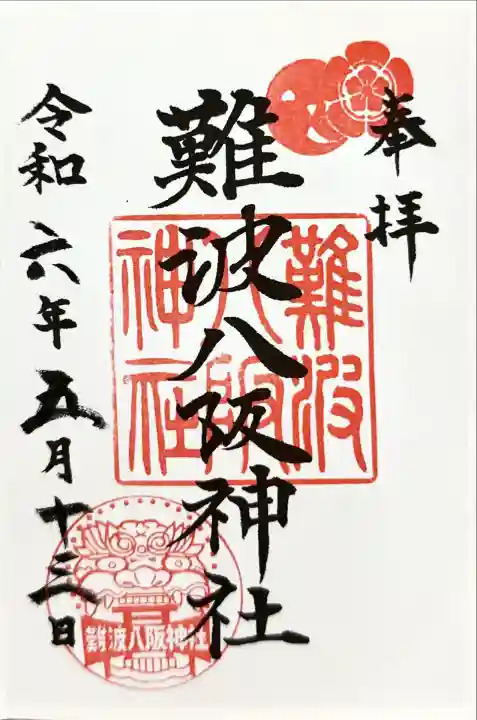 奉拝
難波八阪神社
難波八阪神社
令和六年五月十三日
難波八阪神社